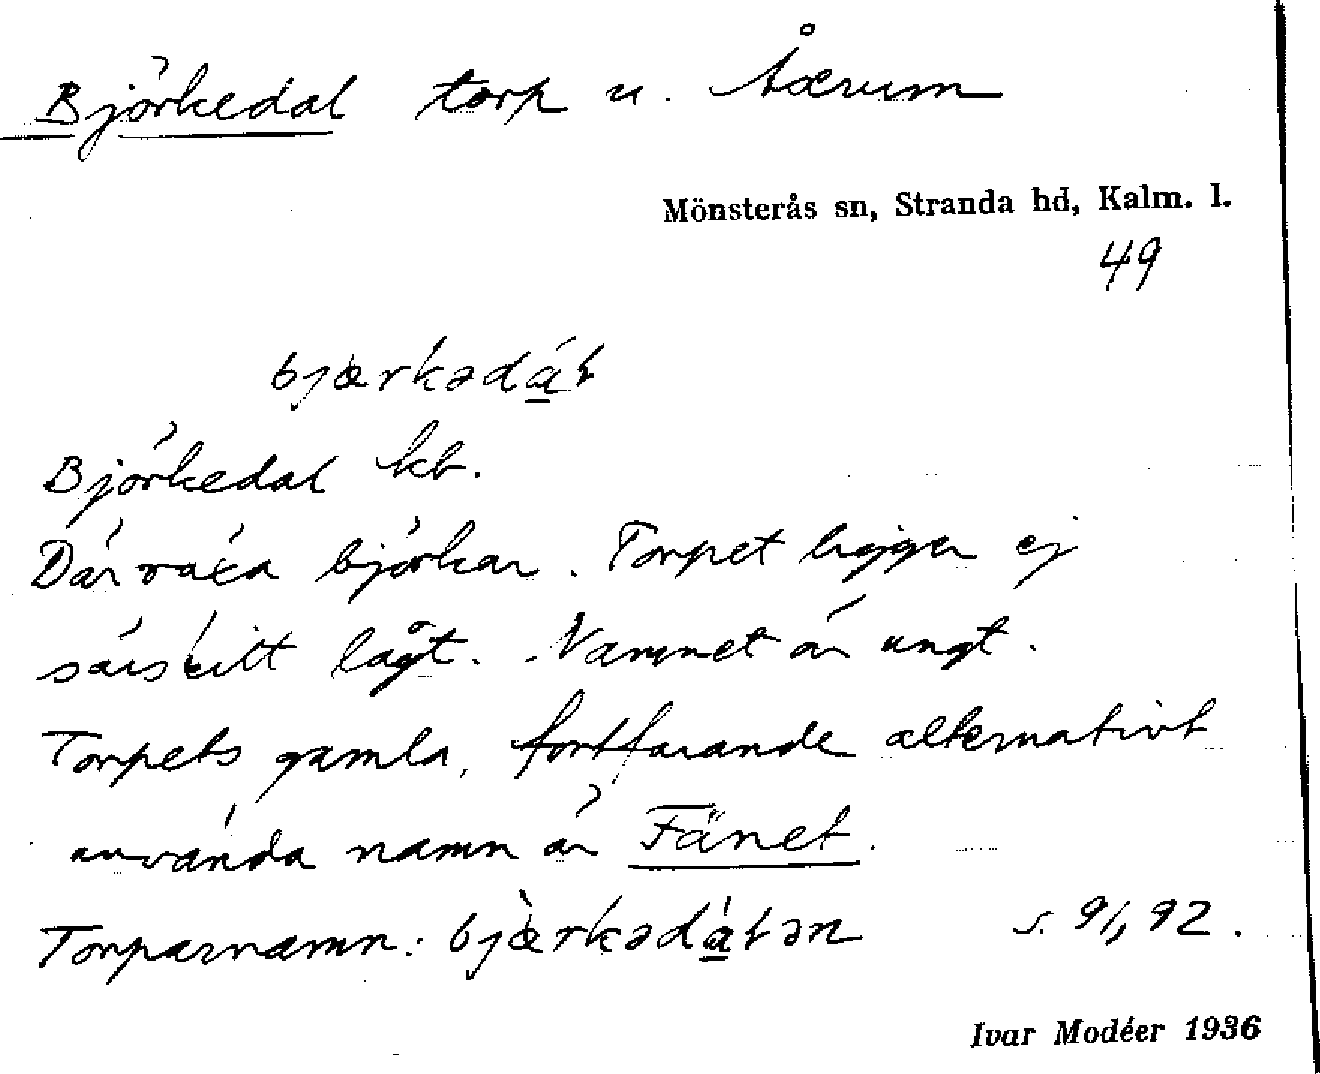 Björkedal torp u. Åxrum
Mönsterås sn, Stranda hd, Kalm. l.
49
bjærkədáɫ
Björkedal kb.
Där växa björkar. Torpet ligger ej
särskilt lågt. Namnet är ungt.
Torpets gamla, fortfarande alternativt
använda namn är Fänet.
Torparnamn: bjæ̀rkədáɫən s. 91, 92.
Ivar Modéer 1936